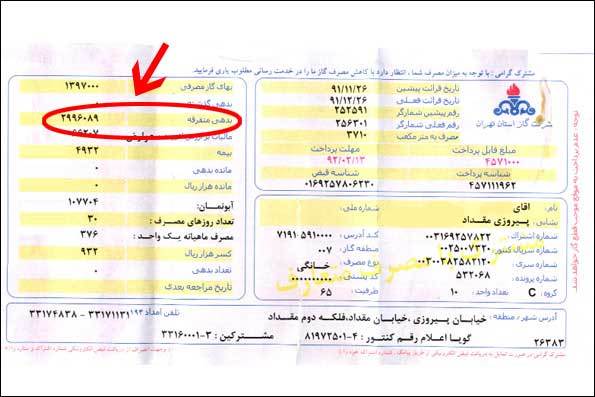 مشترک گرامی: با توجه به میزان مصرف شما، انتظار دارد با کاهش مصرف گاز ما را در خدمت رسانی مطلوب یاری فرمایید.
شرکت گاز استان تهران
مبلغ قابل پرداخت
۴۵۷۱۰۰۰
شناسه پرداخت
۴۵۷۱۱۱۹۶۲
تاریخ قرائت پیشین ۹۱/۱۱/۲۶
تاریخ قرائت فعلی ۹۱/۱۲/۲۶
رقم پیشین شمارشگر ۲۵۲۵۹۱
رقم فعلی شمارشگر ۲۵۶۳۰۱
مصرف به متر مکعب ۳۷۱۰
مهلت پرداخت
۹۲/۰۲/۱۳
شناسه قبض
۰۱۶۹۲۵۷۸۰۶۲۳۰
بهای گاز مصرفی ۱۳۹۷۰۰۰
بدهی گذشته ۰
بدهی متفرقه ۲۹۹۶۰۸۹
بیمه ۴۹۳۲
مانده بدهی ۰
مانده هزار ریال ۰
آبونمان: ۱۰۷۷۰۴
تعداد روزهای مصرف: ۳۰
مصرف ماهیانه یک واحد: ۳۷۶
کسر هزار ریال ۹۳۲
تعداد بدهی ۰
تاریخ مراجعه بعدی
نام: آقای
نشانی: پیروزی مقداد
شماره ملی:
شماره اشتراک: ۰۰۳۱۶۹۲۵۷۸۲۲
شماره سریال کنتور: ۰۰۲۵۰۰۷۳۲۰
شماره سری: ۰۰۳۰۰۳۸۲۵۸۲۱۲۰
شماره پرونده: ۵۳۲۰۶۸
گروه C تعداد واحد: ۱۰
کد آدرس: ۷۱۹۱۵۹۱۰۰۰۰
منطقه گاز: ۰۰۷
نوع مصرف: خانگی
کد پستی: ۰۰۰۰۰۰۰۰۰۰
ظرفیت: ۶۵
آدرس شهر / منطقه: خیابان پیروزی ،خیابان مقداد،فلکه دوم مقداد
تلفن امداد ۱۹۴ ۳۳۱۷۱۱۳۱ - ۳۳۱۷۴۸۳۸
۲۶۳۸۳ گویا اعلام رقم کنتور: ۴-۸۱۹۷۲۵۰۱ مشترکین: ۳-۳۳۱۶۰۰۰۱